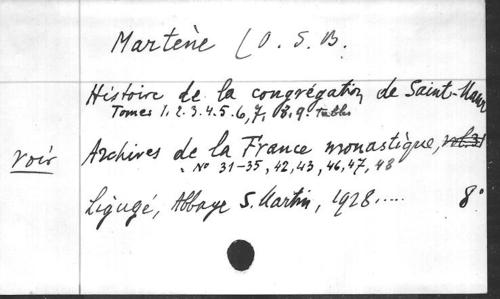 Martène (O. S. B.
Histoire de la congrégation de Saint-Maur
Tomes 1. 2. 3. 4. 5. 6, 7, 8, 9. Tables
voir Archives de la France monastique, vol. 31
No 31-35, 42, 43, 46, 47, 48
Ligugé, Abbaye S. Martin, 1928..... 8°